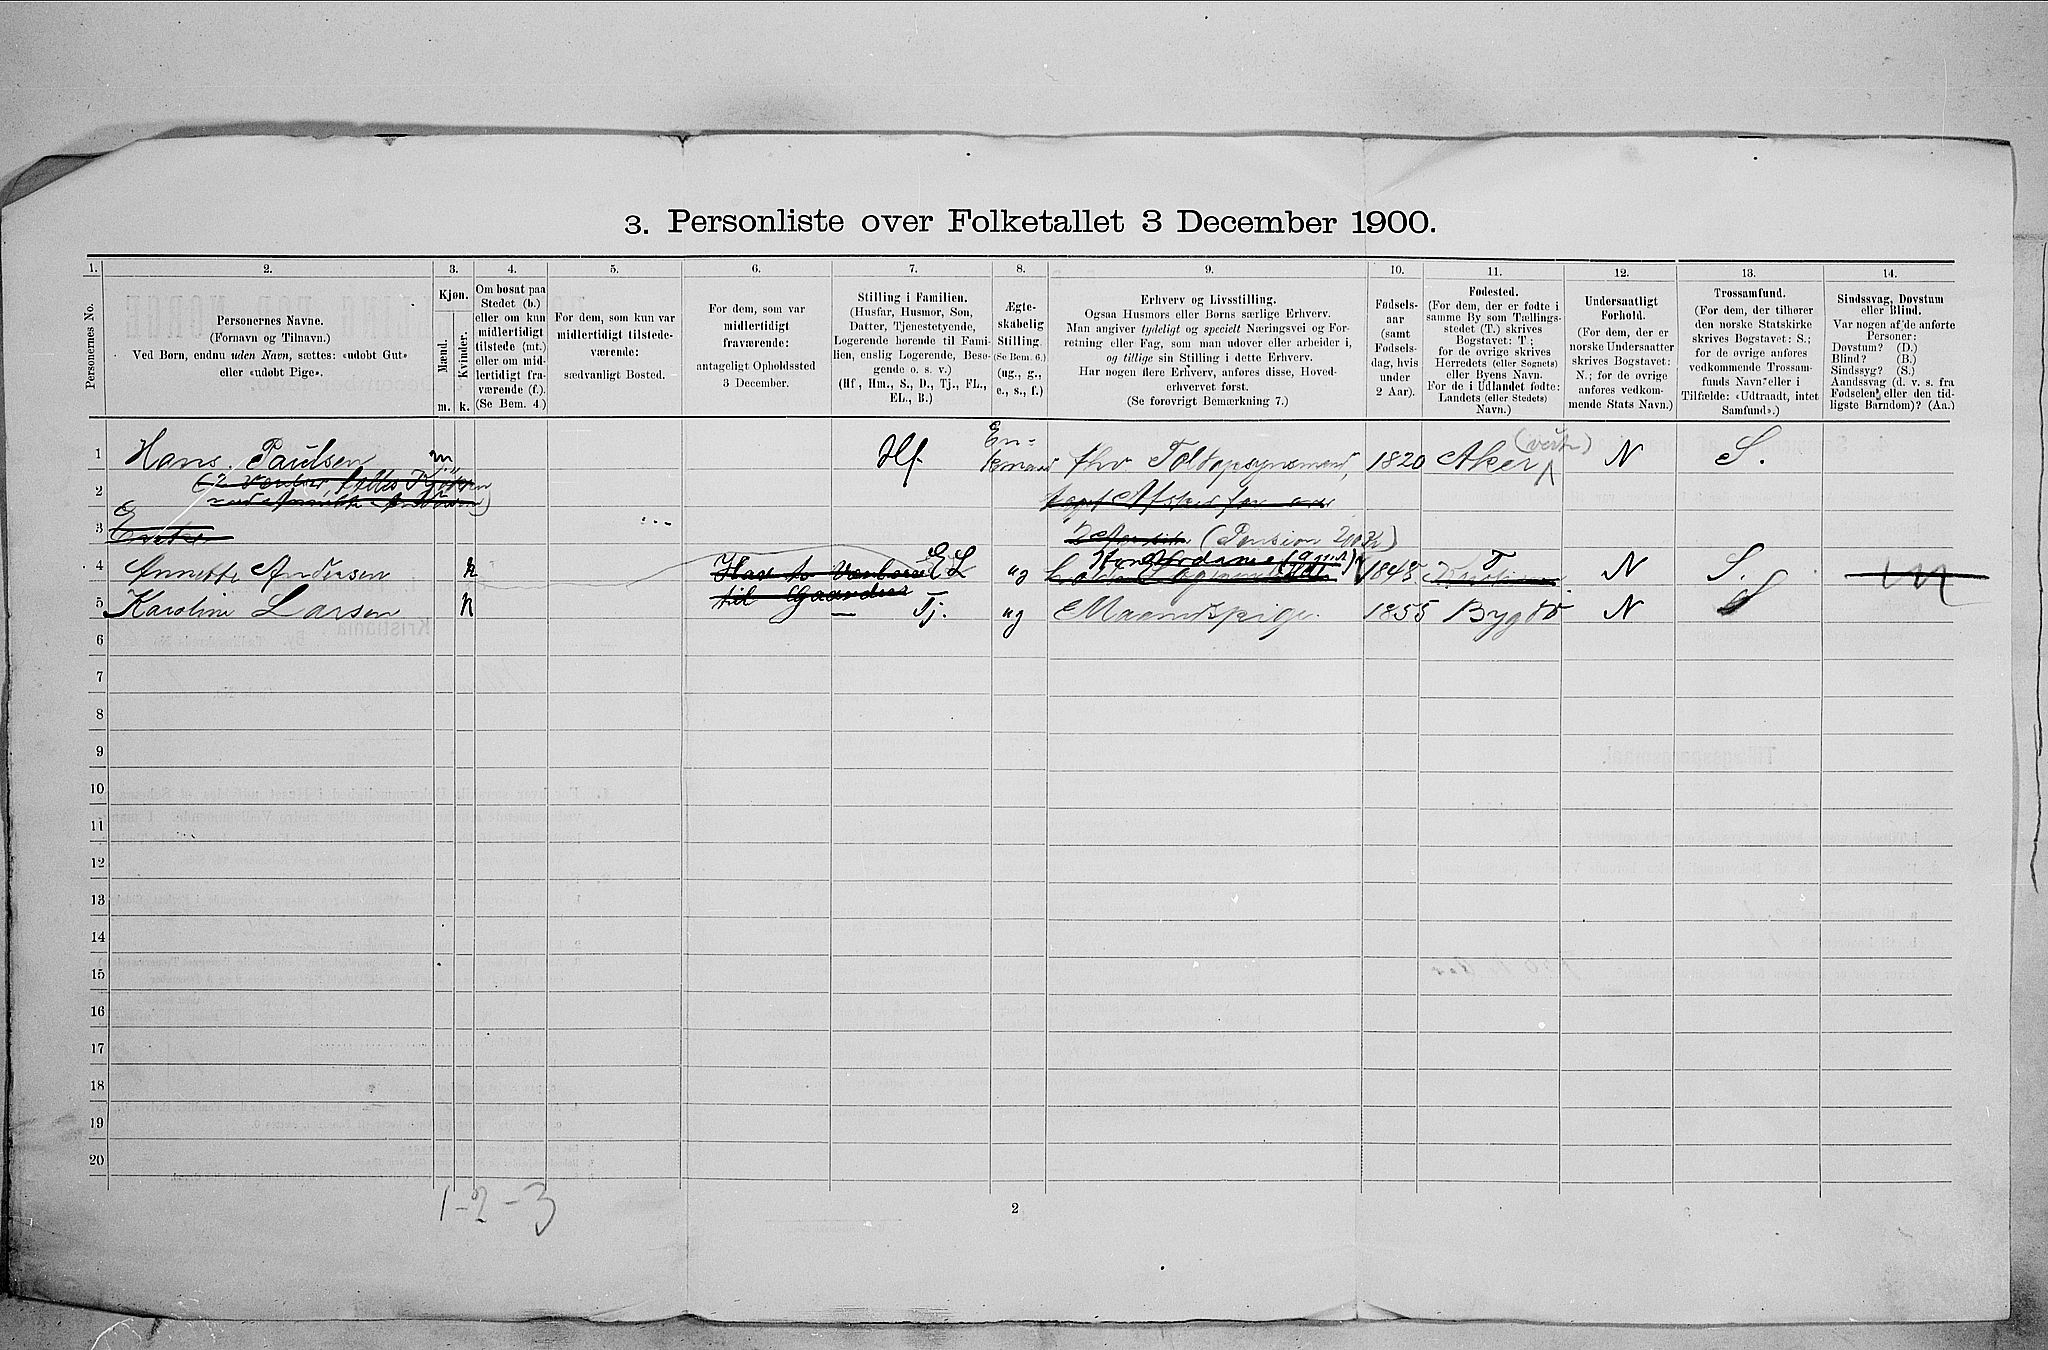 3. Personliste over Folketallet 3 December 1900.
1. 2. 3. 4. 5. 6. 7. 8. 9. 10. 11. 12. 13. 14.
Personernes No.
Personernes Navne.
(Fornavn og Tilnavn.)
Ved Børn, endnu uden Navn, sættes: «udøbt Gut»
eller «udøbt Pige».
Kjøn.
Mænd.
Kvinder.
m. k.
Om bosat paa
Stedet (b.)
eller om kun
midlertidigt
tilstede (mt.)
eller om mid-
lertidigt fra-
værende (f.).
(Se Bem. 4.)
For dem, som kun var
midlertidigt tilstede-
værende:
sædvanligt Bosted.
For dem, som var
midlertidigt
fraværende:
antageligt Opholdssted
3 December.
Stilling i Familien.
(Husfar, Husmor, Søn,
Datter, Tjenestetyende,
Logerende hørende til Fami-
lien, enslig Logerende, Besø-
gende o. s. v.)
(Hf, Hm., S., D., Tj., FL.,
EL., B.)
Ægte-
skabelig
Stilling.
(Se Bem. 6.)
(ug., g.,
e., s., f.)
Erhverv og Livsstilling.
Ogsaa Husmors eller Børns særlige Erhverv.
Man angiver tydeligt og specielt Næringsvei og For-
retning eller Fag, som man udøver eller arbeider i,
og tillige sin Stilling i dette Erhverv.
Har nogen flere Erhverv, anføres disse, Hoved-
erhvervet først.
(Se forøvrigt Bemærkning 7.)
Fødsels-
aar
(samt
Fødsels-
dag, hvis
under
2 Aar).
Fødested.
(For dem, der er fødte i
samme By som Tællings-
stedet (T.) skrives
Bogstavet: T;
for de øvrige skrives
Herredets (eller Sognets)
eller Byens Navn.
For de i Udlandet fødte:
Landets (eller Stedets)
Navn.)
Undersaatligt
Forhold.
(For dem, der er
norske Undersaatter
skrives Bogstavet:
N.; for de øvrige
anføres vedkom-
mende Stats Navn.)
Trossamfund.
(For dem, der tilhører
den norske Statskirke
skrives Bogstavet: S.;
for de øvrige anføres
vedkommende Trossam-
funds Navn eller i
Tilfælde: «Udtraadt, intet
Samfund».)
Sindssvag, Døvstum
eller Blind.
Var nogen af de anførte
Personer:
Døvstum? (D.)
Blind? (B.)
Sindssyg? (S.)
Aandssvag (d. v. s. fra
Fødselen eller den tid-
ligste Barndom)? (Aa.)
1 Hans Paulsen m Hf. En- kemand fhv Toldopsynsmand, 1820 Aker (vestr) N S.
2
3 (Pension
4 Annette Andersen k EL ug 1845 T N S.
5 Karoline Larsen k — Tj. ug Maanedspige. 1855 Bygdø N S
6
7
8
9
10
11
12
13
14
15
16
17
18
19
20
1-2-3
2